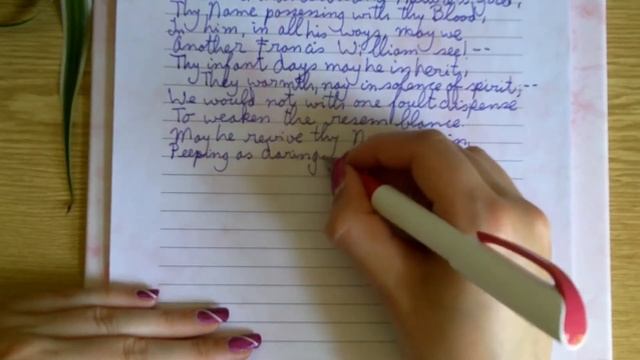 Nature's good,
Thy Name possessing with thy Blood,
In him, in all his ways, may we
Another Francis William see! --
Thy infant days may he inherit,
They warmth, nay insolence of spirit; --
We would not with one foult dispense
To weaken the resemblance.
May he revive thy
Peeping as daring